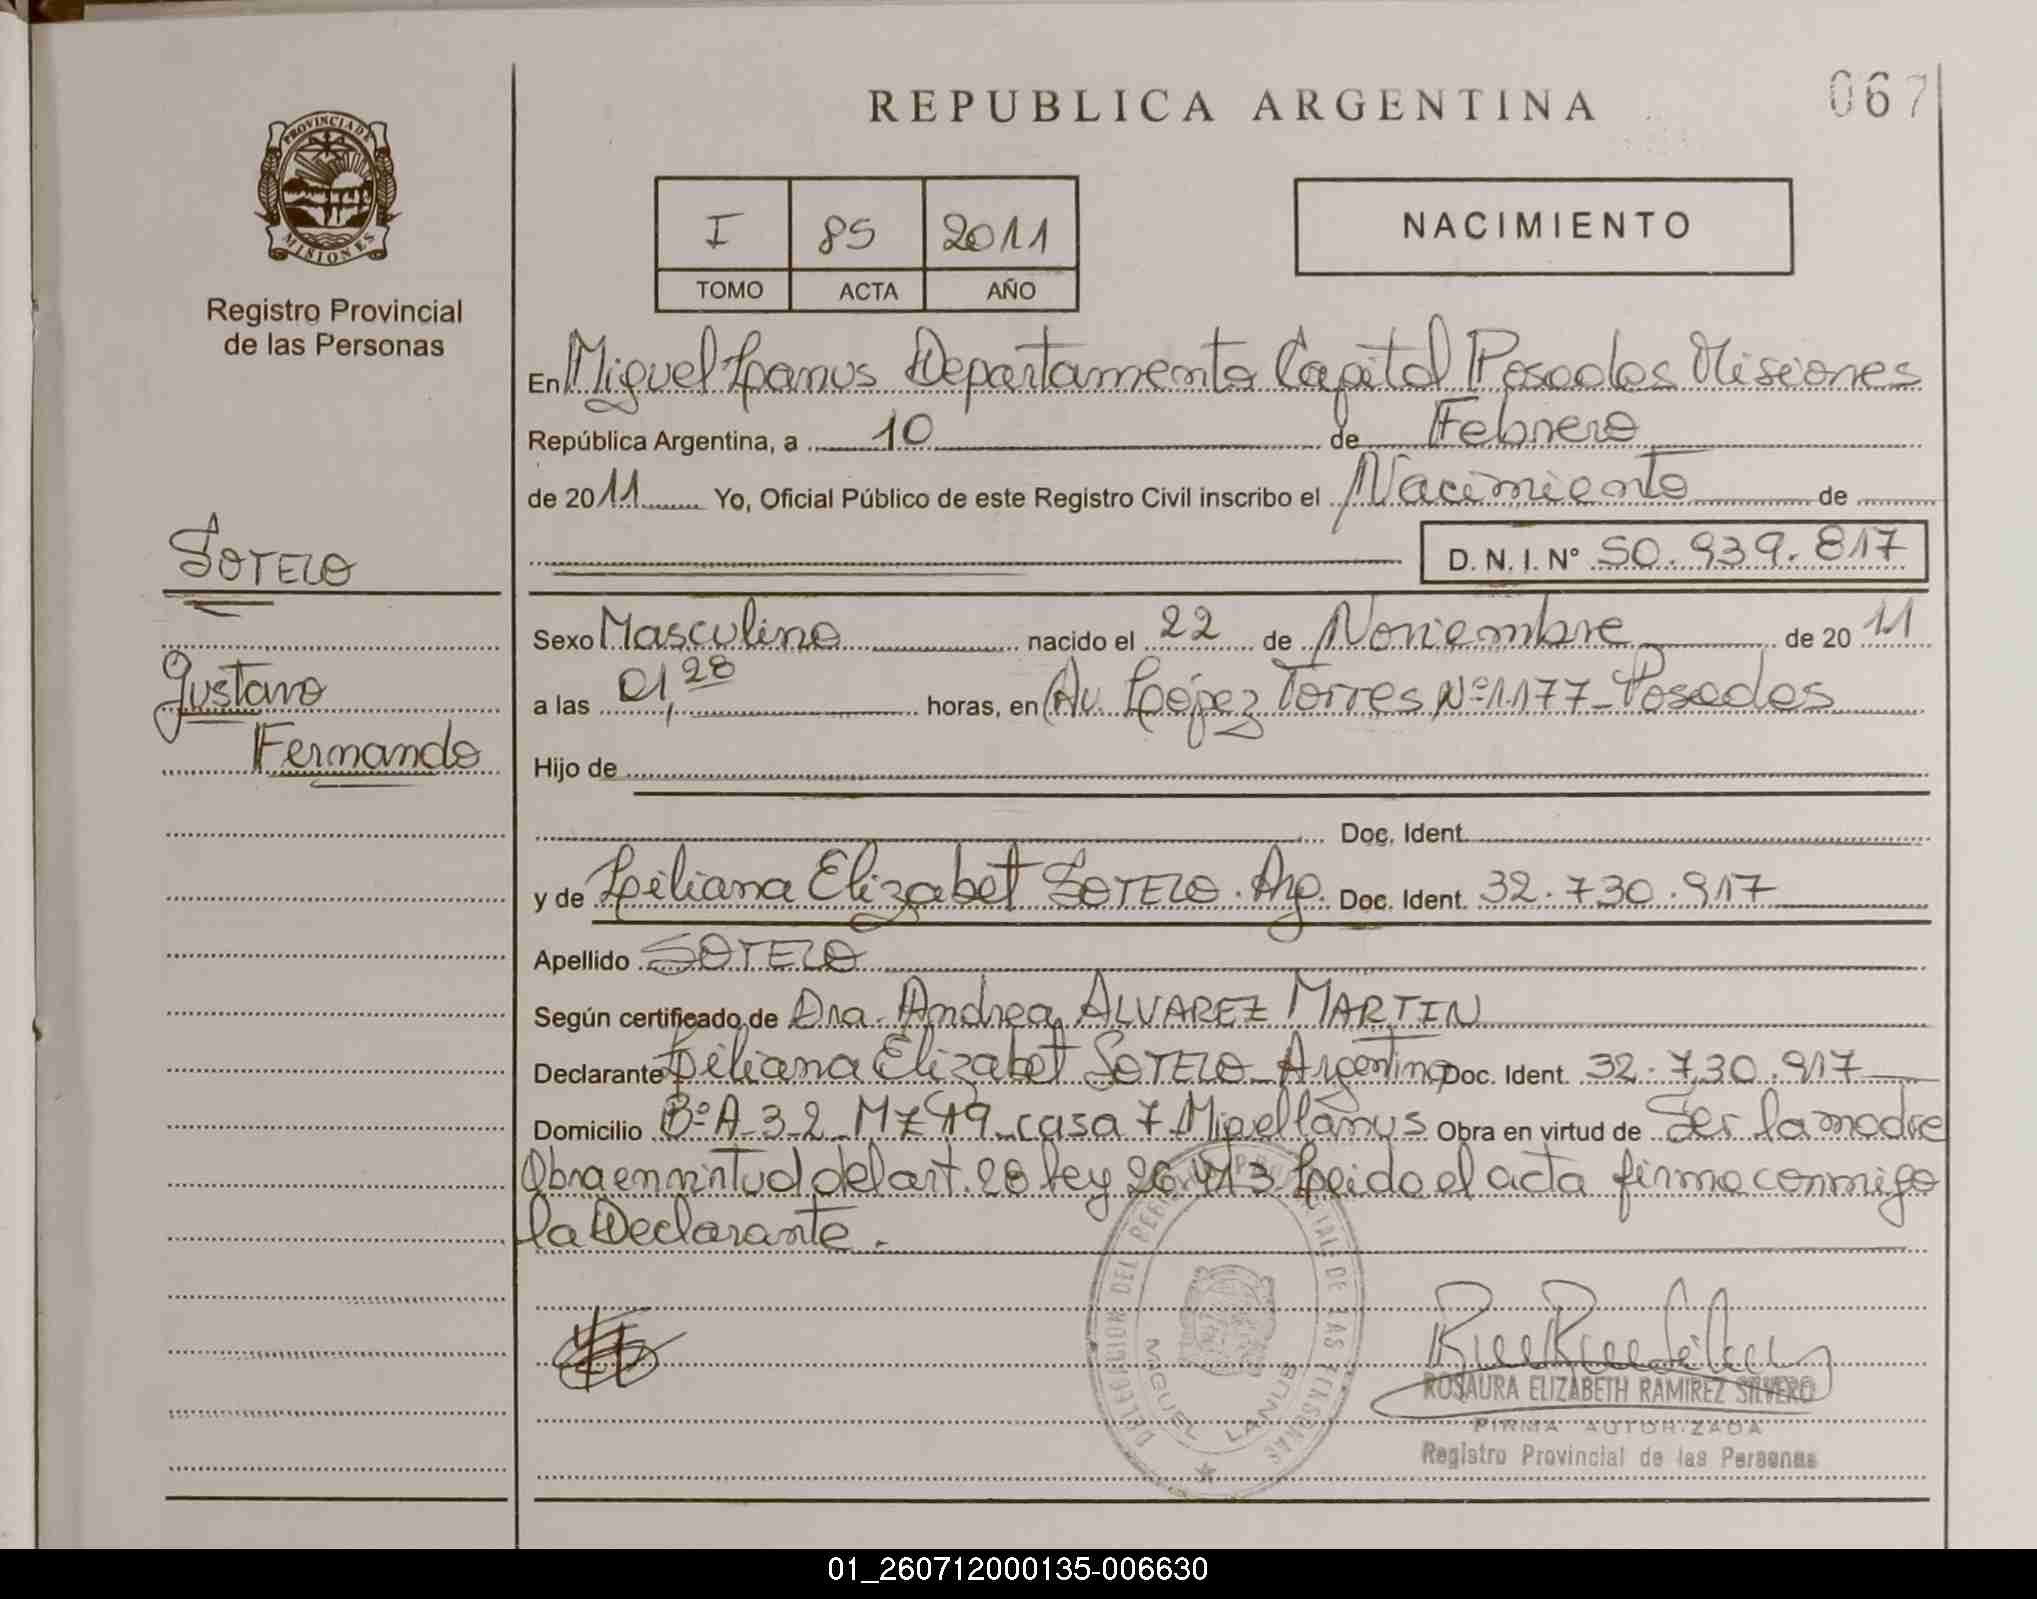 REPUBLICA ARGENTINA
067
PROVINCIA DE
MISIONES
Registro Provincial
de las Personas
I 85 2011
TOMO ACTA AÑO
NACIMIENTO
En Miguel Lanus Departamento Capital Posadas Misiones
República Argentina, a 10 de Febrero
de 2011 Yo, Oficial Público de este Registro Civil inscribo el Nacimiento de
D. N. I. N° 50.939.817
SOTELO
Gustavo
Fernando
Sexo Masculino nacido el 22 de Noviembre de 2011
a las 01,28 horas, en Av. López Torres Nº 1177 - Posadas
Hijo de
Doc. Ident.
y de Liliana Elizabet SOTELO. Arg. Doc. Ident. 32.730.917
Apellido SOTELO
Según certificado de Dra. Andrea ALVAREZ MARTIN
Declarante Liliana Elizabet SOTELO Argentina Doc. Ident. 32.730.917
Domicilio Bº A-3-2 MZ 49 casa 7 Miguel Lanus Obra en virtud de Ser la madre
Obra en virtud del art. 28 Ley 26.413 Leida el acta firma conmigo
la Declarante.
DELEGACION DEL REGISTRO PROVINCIAL DE LAS PERSONAS
MIGUEL LANUS
ROSAURA ELIZABETH RAMIREZ SILVERO
FIRMA AUTORIZADA
Registro Provincial de las Personas
01_260712000135-006630